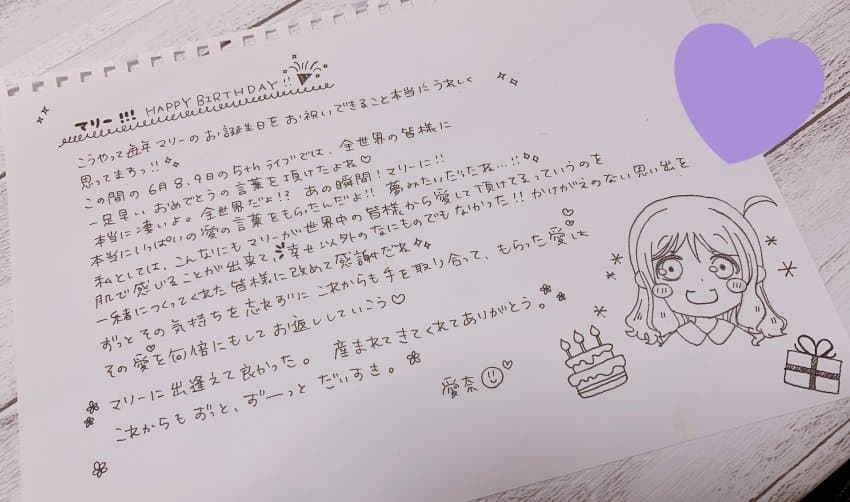 マリー!!! HAPPY BIRTHDAY!!
こうやって毎年マリーのお誕生日をお祝いできること本当にうれしく
思ってまろっ!!
この間の6月8、9日の5thライブでは、全世界の皆様に
一足早いおめでとうの言葉を頂けたよね♡
本当に凄いよ。全世界だよ!? あの瞬間!マリーに!!
本当にいっぱいの愛の言葉をもらったんだよ!! 夢みたいだったね...!!
私としては、こんなにもマリーが世界中の皆様から愛して頂けてるっていうのを
肌で感じることが出来て、幸せ以外のなにものでもなかった!! かけがえのない思い出を
一緒につくってくれた皆様に改めて感謝だね
ずっとその気持ちを忘れずにこれからも手を取り合って、もらった愛は
その愛を何倍にもしてお返ししていこう♡
マリーに出逢えて良かった。 産まれてきてくれてありがとう。
これからもずっと、ずーっと だいすき。
愛奈